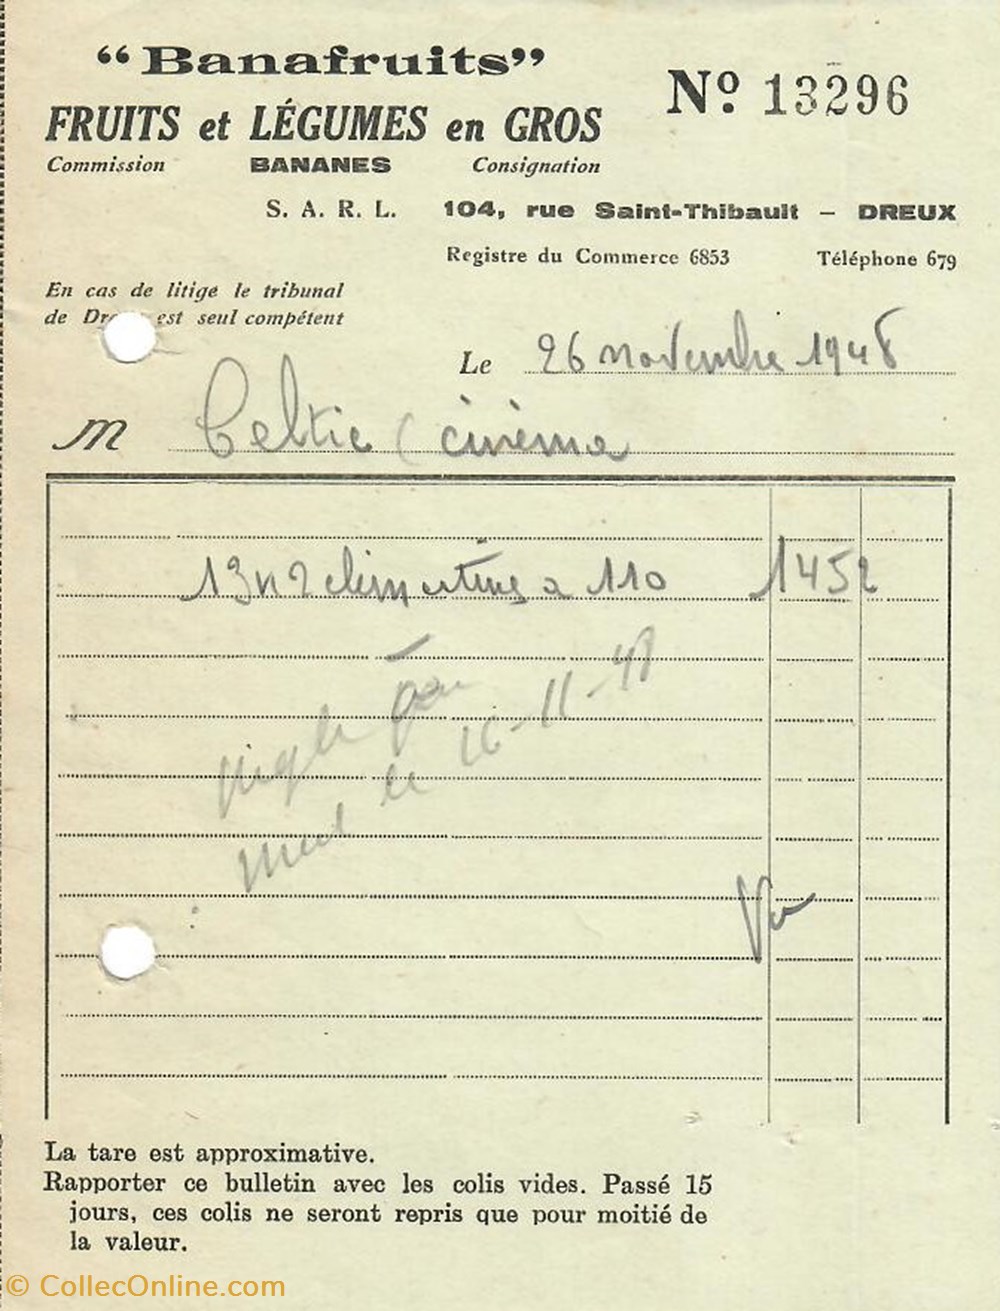 “Banafruits”
Nº 13296
FRUITS et LÉGUMES en GROS
Commission BANANES Consignation
S. A. R. L. 104, rue Saint-Thibault – DREUX
Registre du Commerce 6853 Téléphone 679
En cas de litige le tribunal
de Dreux est seul compétent
Le 26 novembre 1948
M Celtic (cinéma
13k2 clémentines a 110 1452
le 26-11-48
La tare est approximative.
Rapporter ce bulletin avec les colis vides. Passé 15
jours, ces colis ne seront repris que pour moitié de
la valeur.
© CollecOnline.com